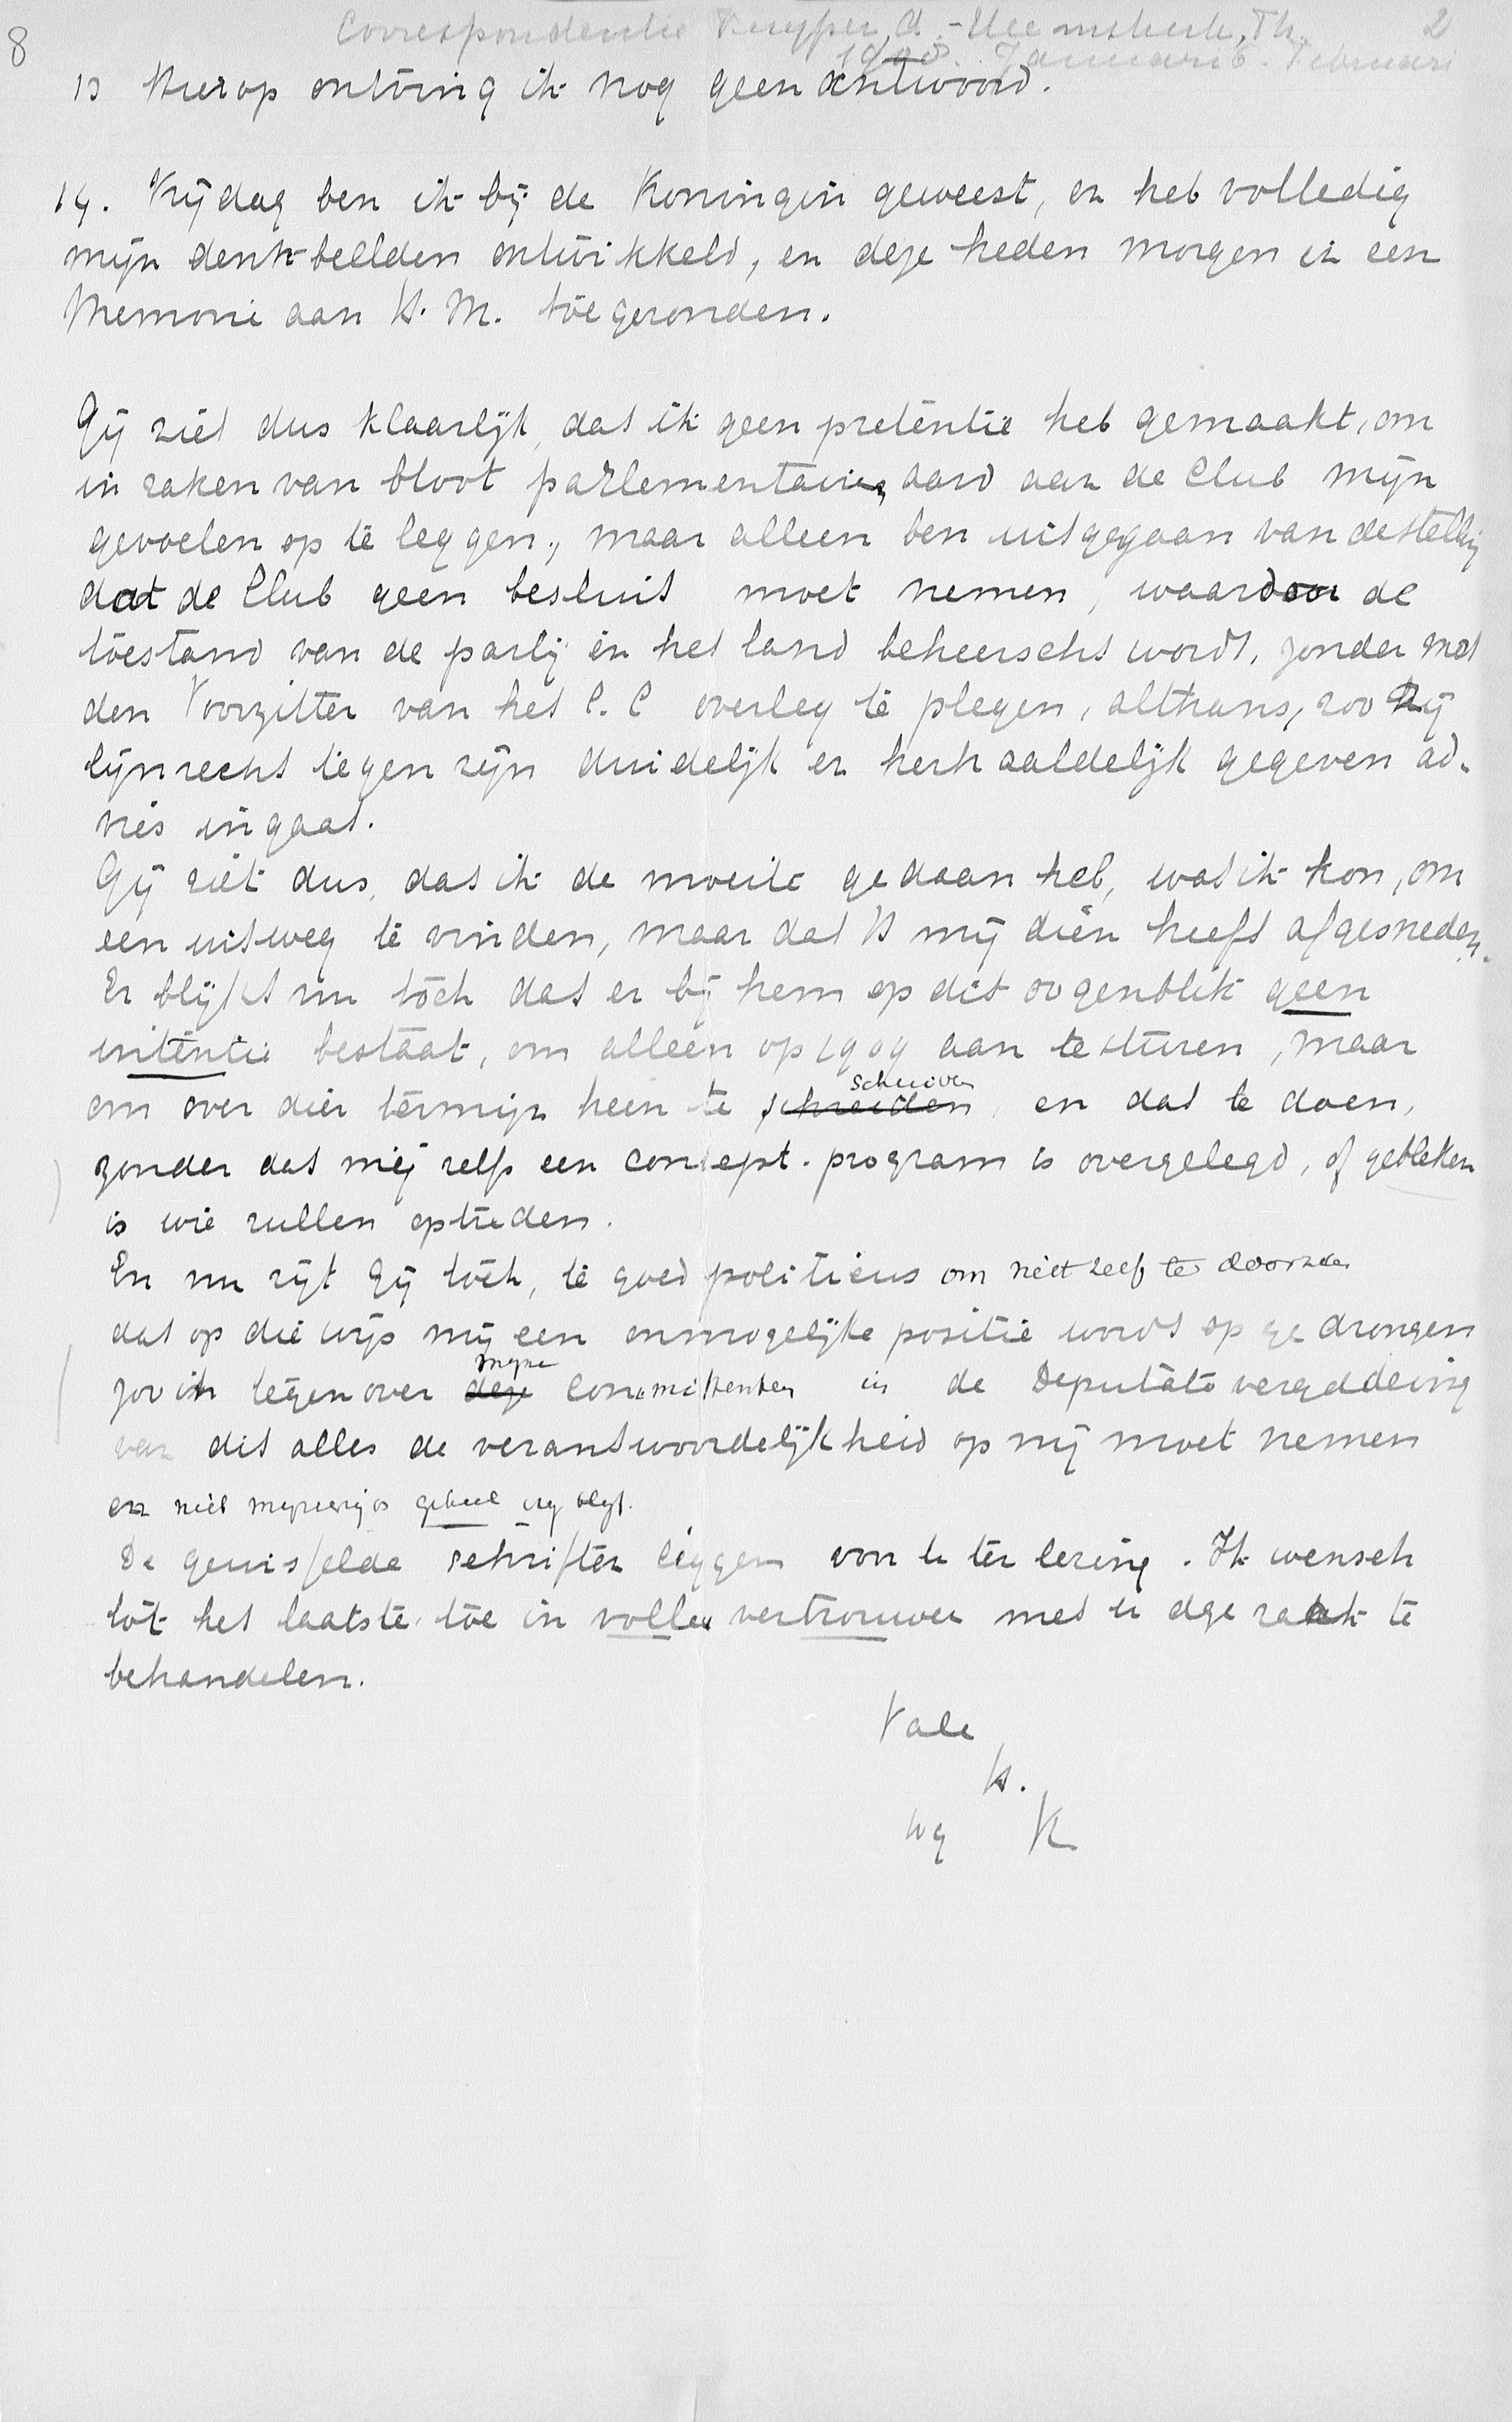 8
Correspondentie Kuyper, A. - Heemskerk, Th. 2
1908. Januari 6. Februari
13 Hierop ontving ik nog geen antwoord.
14. Vrijdag ben ik bij de Koningin geweest, en heb volledig
mijn denkbeelden ontwikkeld, en deze heden morgen in een
Memorie aan H. M. toegezonden.
Gij ziet dus klaarlijk, dat ik geen pretentie heb gemaakt, om
in zaken van bloot parlementairen aard aan de Club mijn
gevoelen op te leggen, maar alleen ben uitgegaan van de stelling
dat de Club geen besluit moet nemen, waardoor de
toestand van de partij in het land beheerscht wordt, zonder met
den Voorzitter van het C. C overleg te plegen, althans, zoo zij
lijnrecht tegen zijn duidelijk en herhaaldelijk gegeven ad-
vies ingaat.
Gij ziet dus, dat ik de moeite gedaan heb, wat ik kon, om
een uitweg te vinden, maar dat H mij dien heeft afgesneden.
Er blijkt nu toch dat er bij hem op dit oogenblik geen
intentie bestaat, om alleen op 1909 aan te sturen, maar
om over dien termijn heen te schreiden schuiven, en dat te doen,
zonder dat mij zelfs een concept-program is overgelegd, of gebleken
is wie zullen optreden.
En nu zijt Gij toch, te goed politicus om niet zelf te doorzien
dat op die wijs mij een onmogelijke positie wordt opgedrongen
zoo ik tegenover deze mijne committenten in de Deputatenvergadering
van dit alles de verantwoordelijkheid op mij moet nemen
en niet mijnerzijds geheel vrij blijf.
De gewisselde schriften liggen voor U ter lezing. Ik wensch
tot het laatste toe in volle vertrouwen met U deze zaak te
behandelen.
Vale
K.
wg K